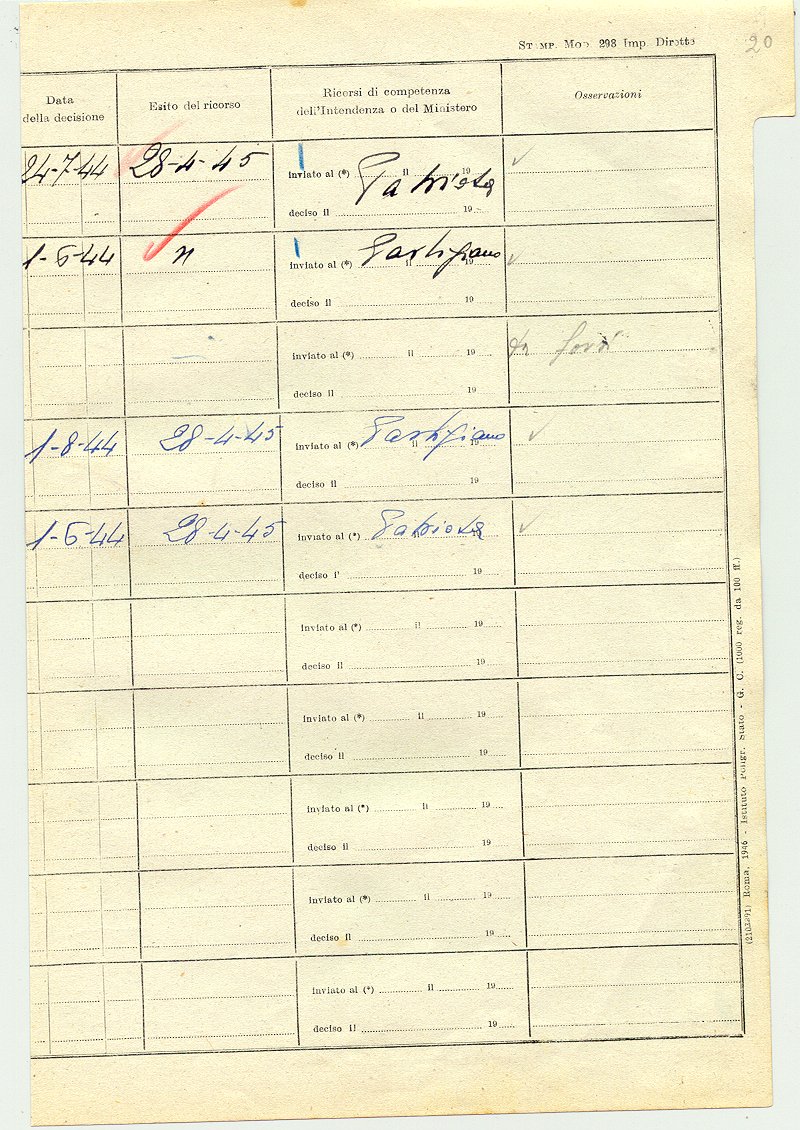 STAMP. MOD 298 Imp. Dirette
20
Data
della decisione
Esito del ricorso
Ricorsi di competenza
dell'Intendenza o del Ministero
Osservazioni
24-7-44 28-4-45 inviato al (*) il 19 Patriota
deciso il 19
1-6-44 n inviato al (*) il 19 Partigiano
deciso il 19
inviato al (*) il 19
deciso il 19
1-8-44 28-4-45 inviato al (*) il 19 Partigiano
deciso il 19
1-6-44 28-4-45 inviato al (*) il Patriota
deciso i' 19
inviato al (*) il 19
deciso il 19
inviato al (*) il 19
deciso il 19
inviato al (*) il 19
deciso il 19
inviato al (*) il 19
deciso il 19
inviato al (*) il 19
deciso il 19
Roma, 1946 - Istituto Poligr. Stato - G. C. (1000 reg. da 100 ff.)